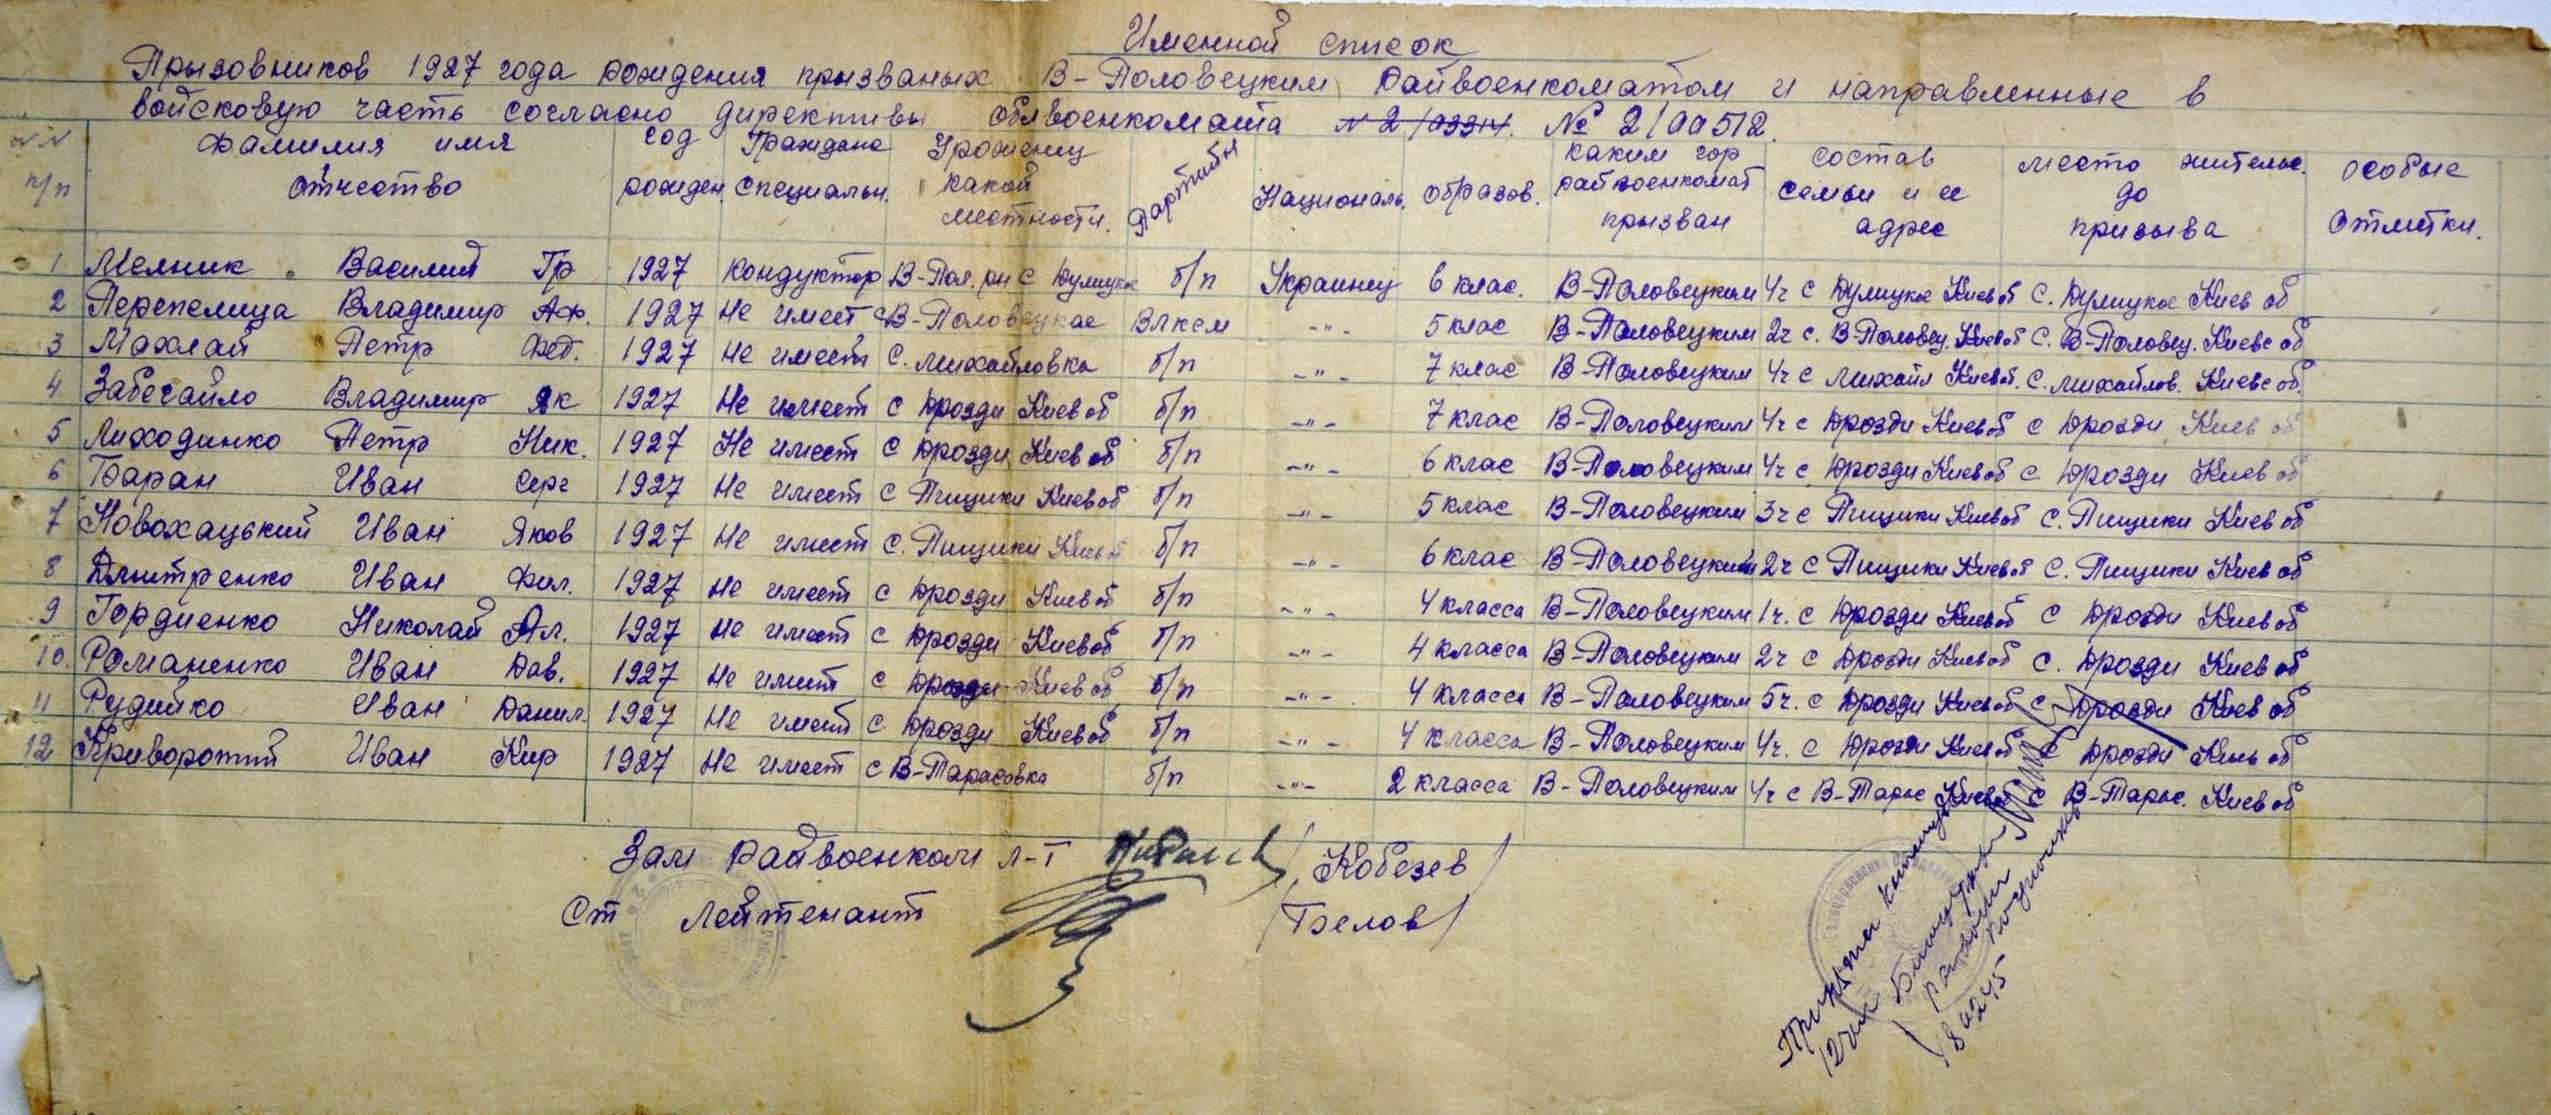 Именной список
Призовников 1927 года рождения призваных В-Половецким Райвоенкоматом и направленные в
войсковую часть согласно директивы облвоенкомата № 2/03314. № 2/00512.
№№ п/п | Фамилия имя отчество | год рожден. | Граждане специальн. | Уроженец какой местности. | Партийн | Националь. | образов. | каким гор райвоенкомат призван | состав семьи и ее адрес | место жительс. до призыва | особые отметки.
1 Мелник Василий Гр 1927 кондуктор В-Пол. рн с Дулицкое б/п Украинец 6 клас. В-Половецким 4ч с Дулицкое Киев об с. Дулицкое Киев об
2 Перепелица Владимир Аф. 1927 Не имеет с В-Половецкое Влксм -"- 5 клас В-Половецким 2ч с. В-Половец. Киев об с. В-Половец. Киевс об
3 Махлай Петр Фед. 1927 Не имеет с. Михайловка б/п -"- 7 клас В-Половецким 4ч с Михайл Киевоб. с. Михайлов. Киевс об.
4 Забегайло Владимир Як 1927 Не имеет с Дрозди Киев об б/п -"- 7 клас В-Половецким 4ч с Дрозди Киев об с Дрозди Киев об
5 Лиходинко Петр Ник. 1927 Не имеет с Дрозди Киев об б/п -"- 6 клас В-Половецким 4ч с Дрозди Киев об с Дрозди Киев об
6 Баран Иван Серг 1927 Не имеет с Пищики Киев об б/п -"- 5 клас В-Половецким 3ч с Пищики Киев об с. Пищики Киев об
7 Новохацький Иван Яков 1927 Не имеет с. Пищики Киев об б/п -"- 6 клас В-Половецким 2ч с Пищики Киев об с. Пищики Киев об
8 Дмитренко Иван Фил. 1927 Не имеет с Дрозди Киев об б/п -"- 4 класса В-Половецким 1ч. с Дрозди Киев об с Дрозди Киев об
9 Гордиенко Николай Ал. 1927 Не имеет с Дрозди Киев об б/п -"- 4 класса В-Половецким 2ч с Дрозди Киев об с. Дрозди Киев об
10. Романенко Иван Дав. 1927 Не имеет с Дрозди Киев об б/п -"- 4 класса В-Половецким 5ч. с Дрозди Киев об с Дрозди Киев об
11 Рудийко Иван Данил. 1927 Не имеет с Дрозди Киев об б/п -"- 4 класса В-Половецким 4ч. с Дрозди Киев об с Дрозди Киев об
12 Криворотий Иван Кир 1927 Не имеет с В-Тарасовка б/п -"- 2 класса В-Половецким 4ч с В-Тарас Киев об с В-Тарас. Киев об
Зам Райвоенком л-т /Кобезев/
Ст Лейтенант /Белов/
12 чел